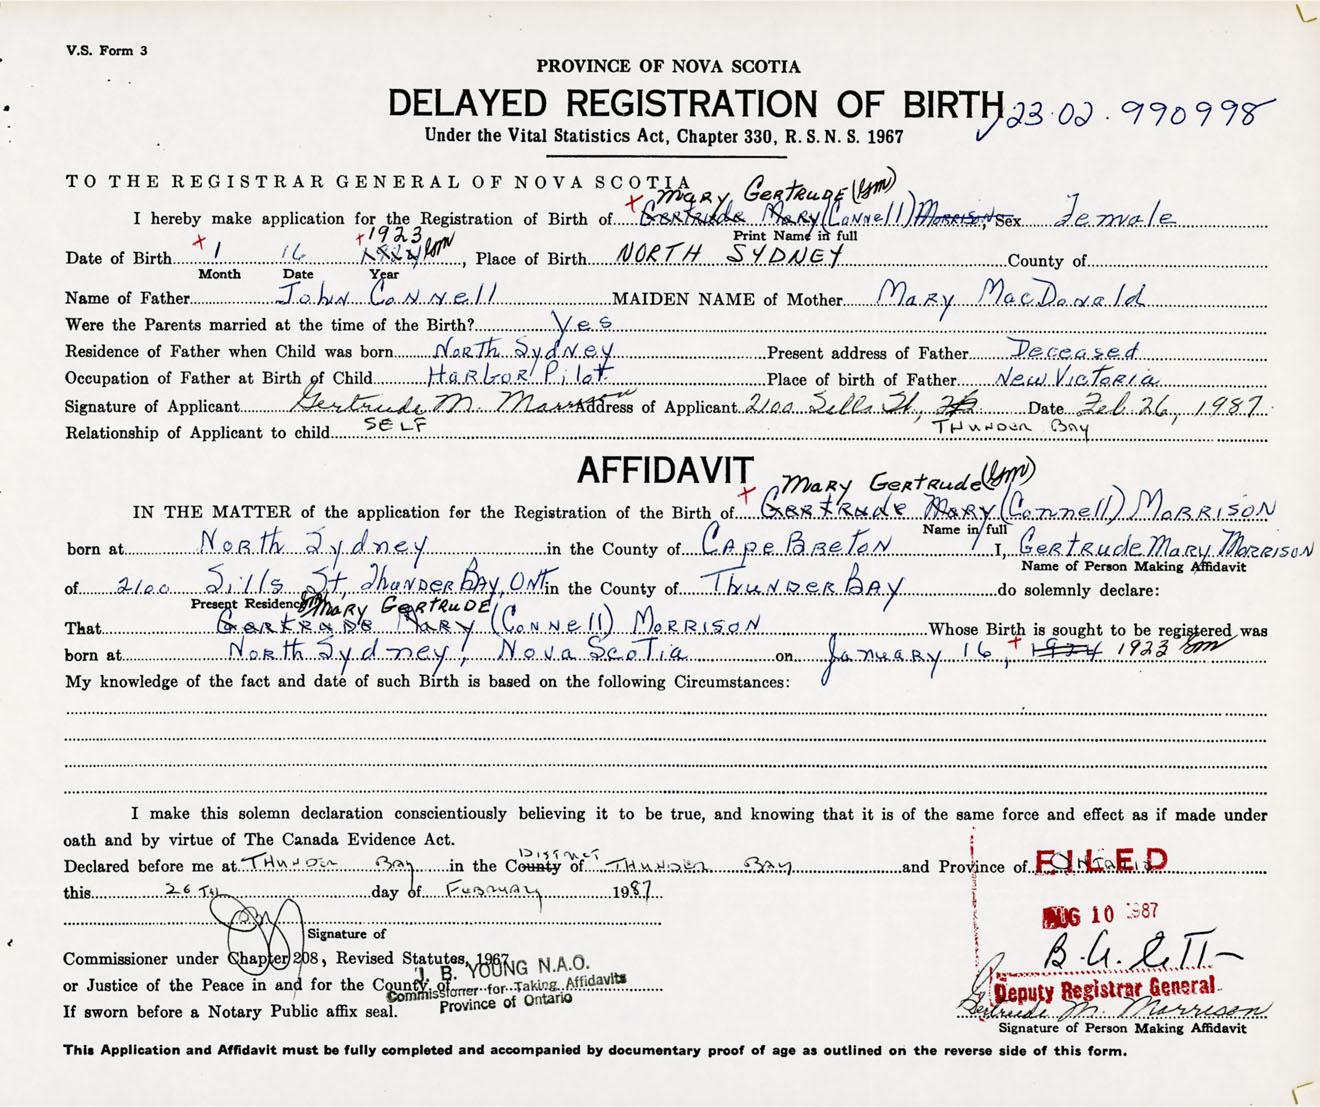 V.S. Form 3
PROVINCE OF NOVA SCOTIA
DELAYED REGISTRATION OF BIRTH 23·02·990998
Under the Vital Statistics Act, Chapter 330, R. S. N. S. 1967
TO THE REGISTRAR GENERAL OF NOVA SCOTIA
MARY GERTRUDE (GM)
I hereby make application for the Registration of Birth of Gertrude Mary (Connell) Morrison, Sex Female
Print Name in full
1923 GM
Date of Birth 1 16 1924, Place of Birth NORTH SYDNEY County of
Month Date Year
Name of Father John Connell MAIDEN NAME of Mother Mary MacDonald
Were the Parents married at the time of the Birth? Yes
Residence of Father when Child was born North Sydney Present address of Father Deceased
Occupation of Father at Birth of Child Harbor Pilot Place of birth of Father New Victoria
Signature of Applicant Gertrude M. Morrison Address of Applicant 2100 Sills St, Date Feb. 26, 1987
Relationship of Applicant to child SELF THUNDER BAY
AFFIDAVIT
Mary Gertrude (GM)
IN THE MATTER of the application for the Registration of the Birth of Gertrude Mary (Connell) MORRISON
Name in full
born at North Sydney in the County of Cape Breton I, Gertrude Mary Morrison
Name of Person Making Affidavit
of 2100 Sills St, Thunder Bay, Ont in the County of Thunder Bay do solemnly declare:
Present Residence
GM Mary Gertrude
That Gertrude Mary (Connell) Morrison Whose Birth is sought to be registered was
born at North Sydney, Nova Scotia on January 16, 1924 1923 GM
My knowledge of the fact and date of such Birth is based on the following Circumstances:
I make this solemn declaration conscientiously believing it to be true, and knowing that it is of the same force and effect as if made under
oath and by virtue of The Canada Evidence Act.
DISTRICT
Declared before me at THUNDER BAY in the County of THUNDER BAY and Province of ONTARIO
FILED
this 26TH day of FEBRUARY 1987
AUG 10 1987
Signature of
Commissioner under Chapter 208, Revised Statutes, 1967
or Justice of the Peace in and for the County of
J. B. YOUNG N.A.O.
Commissioner for Taking Affidavits
Province of Ontario
Deputy Registrar General
If sworn before a Notary Public affix seal.
Gertrude M. Morrison
Signature of Person Making Affidavit
This Application and Affidavit must be fully completed and accompanied by documentary proof of age as outlined on the reverse side of this form.